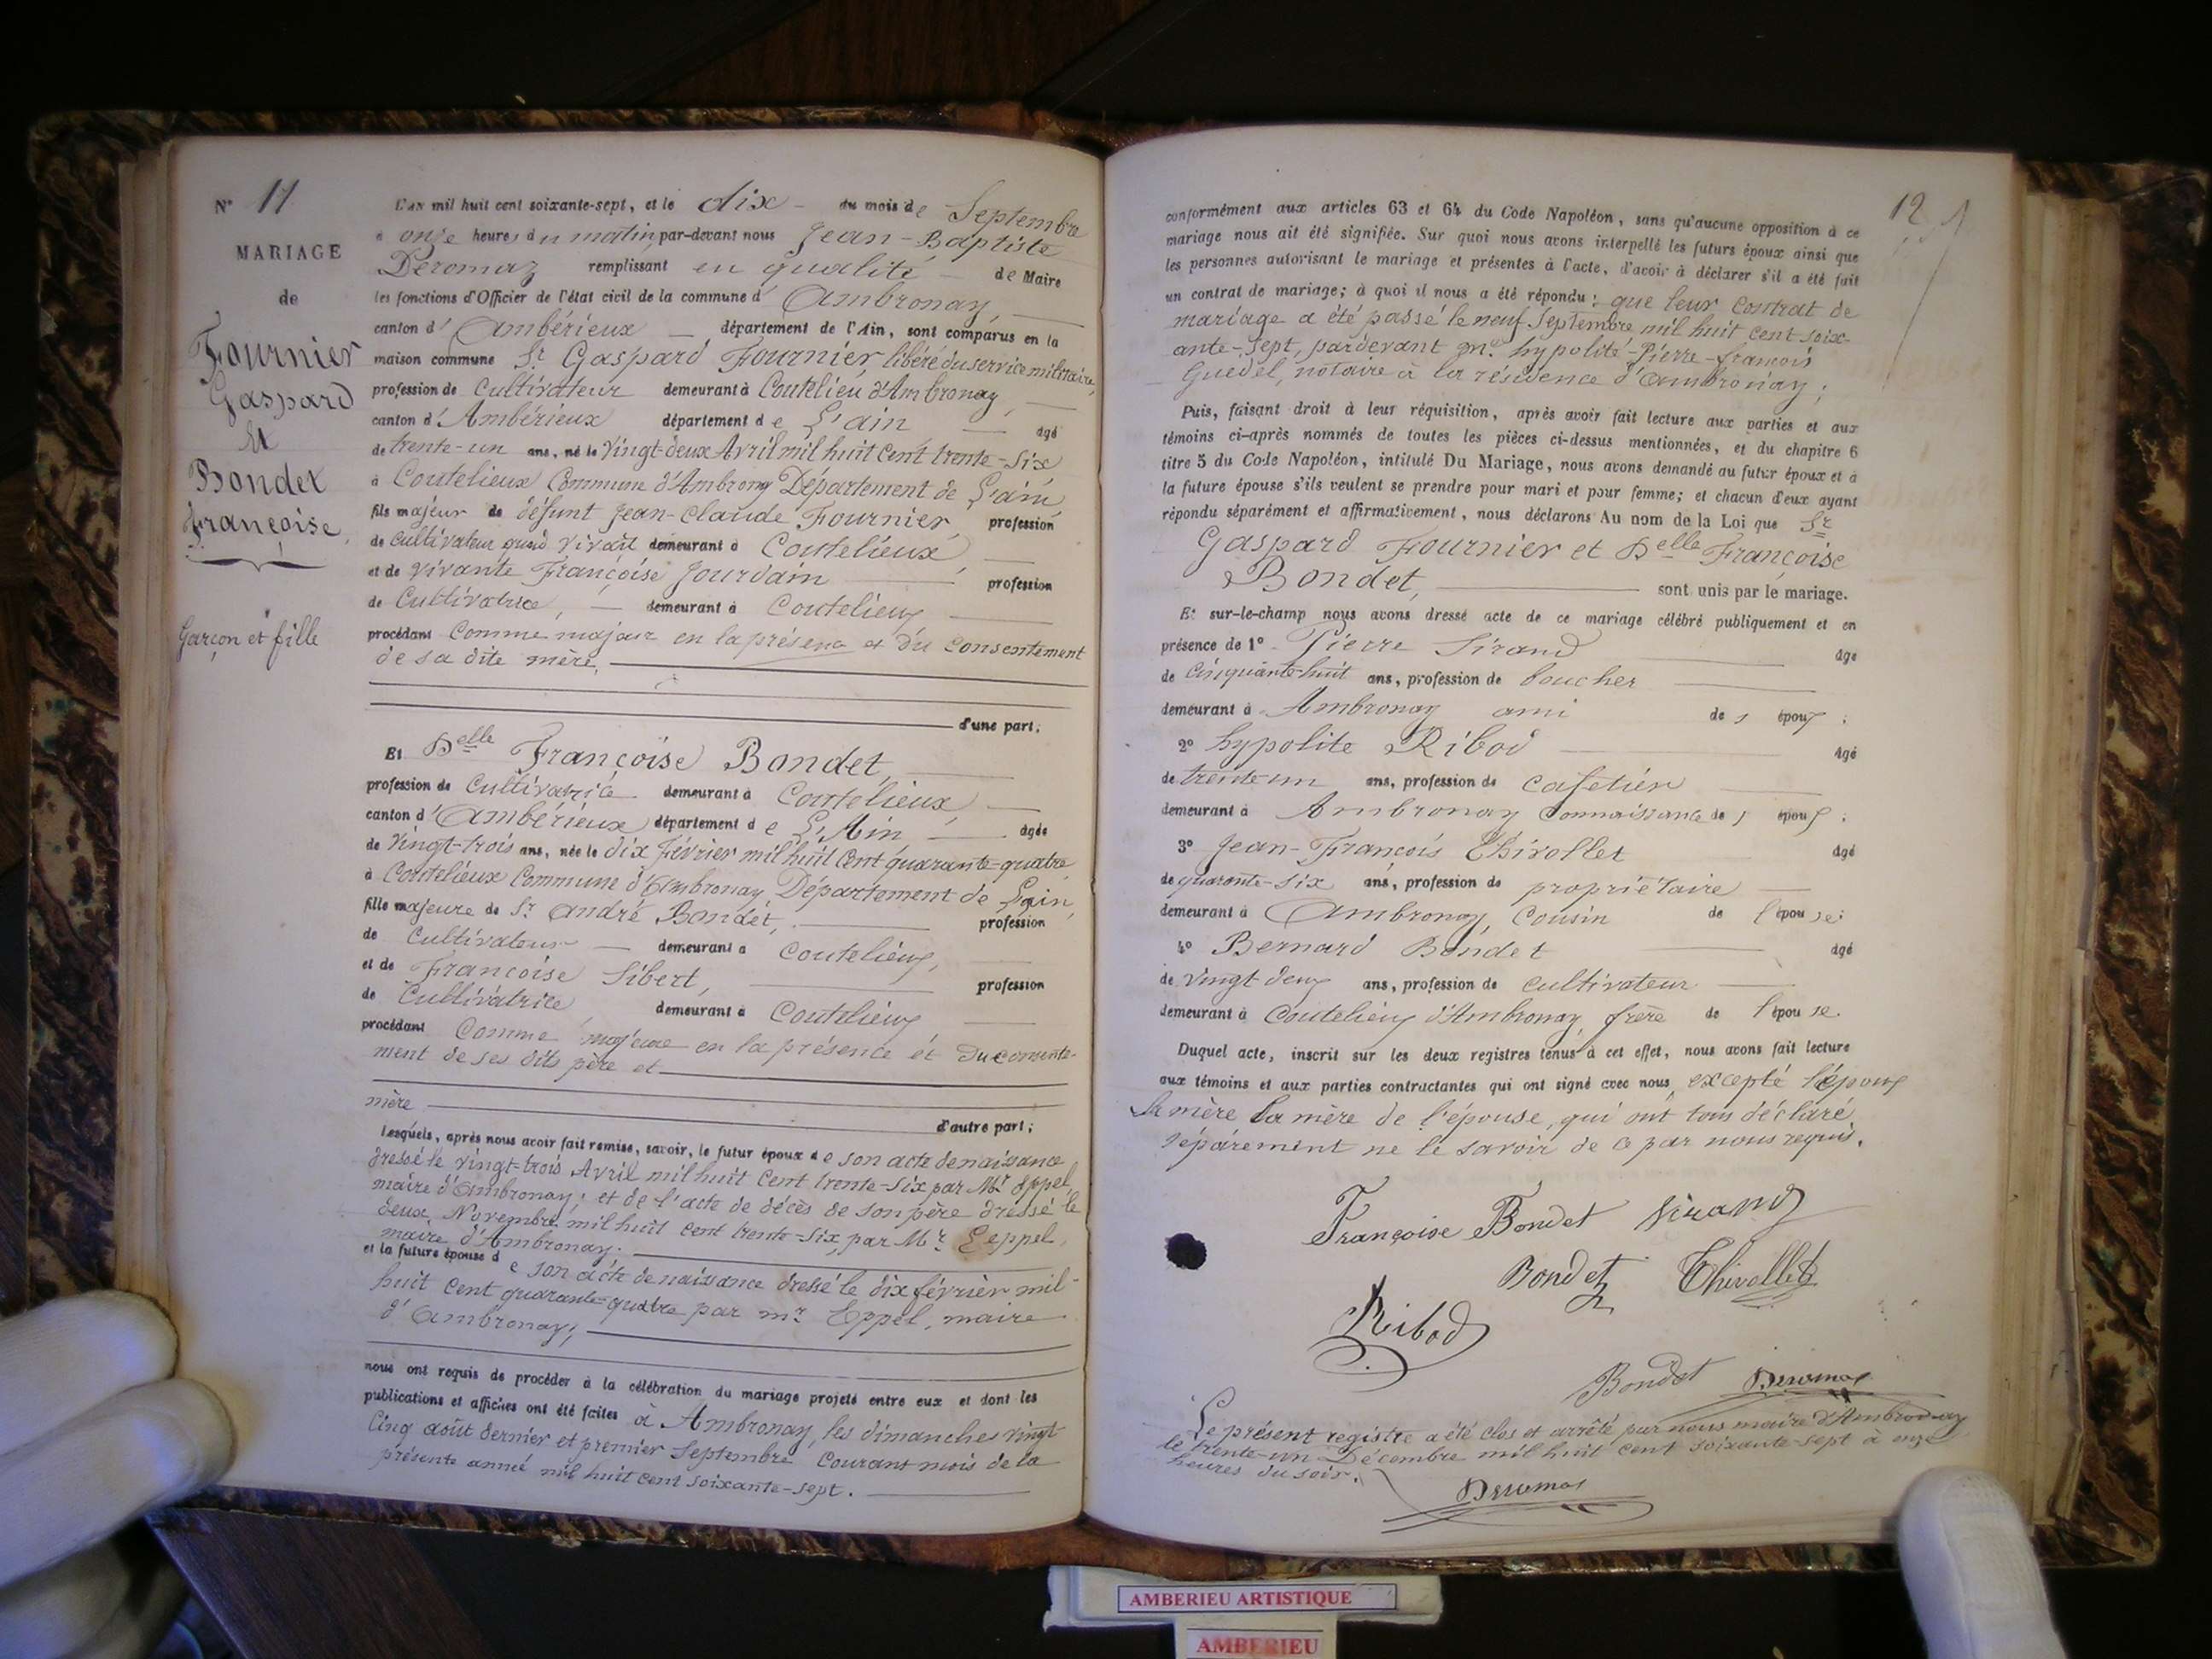 N° 11
MARIAGE
de
Fournier
Gaspard
Et
Bondet
françoise
Garçon et fille
L'an mil huit cent soixante-sept, et le dix du mois de Septembre
à onze heures du matin, par-devant nous Jean-Baptiste
Deromaz remplissant en qualité de Maire
les fonctions d'Officier de l'état civil de la commune d'Ambronay,
canton d'Ambérieux département de l'Ain, sont comparus en la
maison commune Sr Gaspard Fournier, libéré du service militaire,
profession de Cultivateur demeurant à Coutelieu d'Ambronay,
canton d'Ambérieux département de L'ain âgé
de trente-un ans, né le Vingt-deux Avril mil huit cent trente-six
à Coutelieux Commune d'Ambrony Département de L'ain,
fils majeur de défunt Jean-Claude Fournier, profession
de cultivateur quand vivait demeurant à Coutelieux,
et de vivante Françoise Jourdain profession
de Cultivatrice, demeurant à Coutelieux
procédant Comme majeur en la présence et du consentement
de sa dite mère,
d'une part;
Et Delle Françoise Bondet,
profession de Cultivatrice demeurant à Coutelieux,
canton d'Ambérieux département de L'Ain âgée
de Vingt-trois ans, née le dix Février mil huit Cent quarante-quatre
à Coutelieux Commune d'Ambronay Département de L'ain,
fille majeure de Sr André Bondet, profession
de Cultivateur demeurant à Coutelieux,
et de Françoise Sibert, profession
de Cultivatrice demeurant à Coutelieux
procédant Comme majeure en la présence et du consente-
ment de ses dits père et
mère
d'autre part;
Lesquels, après nous avoir fait remise, savoir, le futur époux de son acte de naissance
dressé le vingt-trois Avril mil huit Cent trente-six par Mr Eppel,
maire d'Ambronay; et de l'acte de décès de son père dressé le
deux Novembre mil huit cent trente-six, par Mr Eeppel,
maire d'Ambronay.
et la future épouse de son acte de naissance dressé le dix février mil-
huit Cent quarante-quatre par mr Eppel, maire
d'Ambronay;
nous ont requis de procéder à la célébration du mariage projeté entre eux et dont les
publications et affiches ont été faites à Ambronay, les dimanches vingt
Cinq août dernier et premier Septembre Courant mois de la
présente année mil huit cent soixante-sept.
12
conformément aux articles 63 et 64 du Code Napoléon, sans qu'aucune opposition à ce
mariage nous ait été signifiée. Sur quoi nous avons interpellé les futurs époux ainsi que
les personnes autorisant le mariage et présentes à l'acte, d'avoir à déclarer s'il a été fait
un contrat de mariage; à quoi il nous a été répondu: que leur Contrat de
mariage a été passé le neuf Septembre mil huit cent soix-
ante-sept, pardevant Me hypolité-Pierre-françois
Guedel, notaire à la résidence d'ambronay;
Puis, faisant droit à leur réquisition, après avoir fait lecture aux parties et aux
témoins ci-après nommés de toutes les pièces ci-dessus mentionnées, et du chapitre 6
titre 5 du Code Napoléon, intitulé Du Mariage, nous avons demandé au futur époux et à
la future épouse s'ils veulent se prendre pour mari et pour femme; et chacun d'eux ayant
répondu séparément et affirmativement, nous déclarons Au nom de la Loi que Sr
Gaspard Fournier et Delle Françoise
Bondet, sont unis par le mariage.
Et sur-le-champ nous avons dressé acte de ce mariage célébré publiquement et en
présence de 1° Pierre Sirand âgé
de Cinquante-huit ans, profession de boucher
demeurant à Ambronay ami des époux;
2° hypolite Ribod âgé
de trente un ans, profession de cafetier
demeurant à Ambronay Connaissance des époux;
3° Jean-François Thivollet âgé
de quarante-six ans, profession de propriétaire
demeurant à Ambronay, Cousin de l'épouse;
4° Bernard Bondet âgé
de vingt deux ans, profession de cultivateur
demeurant à Coutelieux d'Ambronay, frère de l'épouse.
Duquel acte, inscrit sur les deux registres tenus à cet effet, nous avons fait lecture
aux témoins et aux parties contractantes qui ont signé avec nous, excepté l'époux
sa mère la mère de l'épouse, qui ont tous déclaré
séparément ne le savoir de ce par nous requis.
Françoise Bondet Sirand
Bondet Thivollet
Ribod
Bondet Deromas
Le présent registre a été clos et arrêté par nous maire d'Ambronay
le trente-un Décembre mil huit cent soixante-sept à onze
heures du soir.
Deromas
AMBERIEU ARTISTIQUE
AMBERIEU